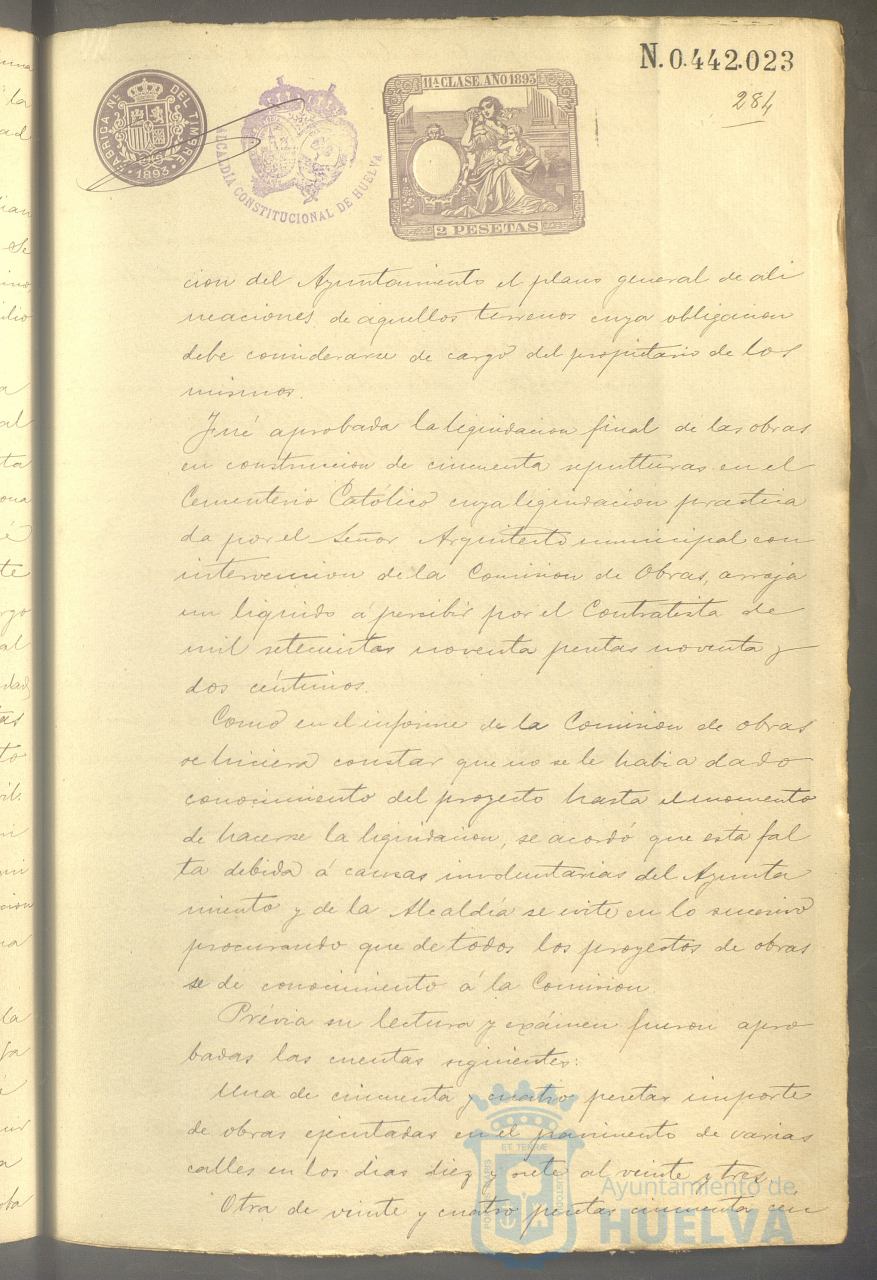 N.0.442.023
284
FABRICA NL. DEL TIMBRE
1893
ALCALDÍA CONSTITUCIONAL DE HUELVA
11ª CLASE. AÑO 1893
2 PESETAS
cion del Ayuntamiento el plano general de ali
neaciones de aquellos terrenos cuya obligacion
debe considerarse de cargo del propietario de los
mismos.
Fué aprobada la liquidacion final de las obras
en construccion de cincuenta sepulturas en el
Cementerio Católico cuya liquidacion practica
da por el Señor Arquitecto municipal con
intervencion de la Comision de Obras, arroja
un liquido á percibir por el Contratista de
mil setecientas noventa pesetas noventa y
dos céntimos.
Como en el informe de la Comision de obras
se hiciera constar que no se le habia dado
conocimiento del proyecto hasta el momento
de hacerse la liquidacion, se acordó que esta fal
ta debida á causas involuntarias del Ayunta
miento y de la Alcaldía se evite en lo sucesivo
procurando que de todos los proyectos de obras
se de conocimiento á la Comision.
Prévia su lectura y exámen fueron apro
badas las cuentas siguientes:
Una de cincuenta y cuatro pesetas importe
de obras ejecutadas en el pavimento de varias
calles en los dias diez y siete al veinte y tres.
Otra de veinte y cuatro pesetas cincuenta cén
Ayuntamiento de
HUELVA